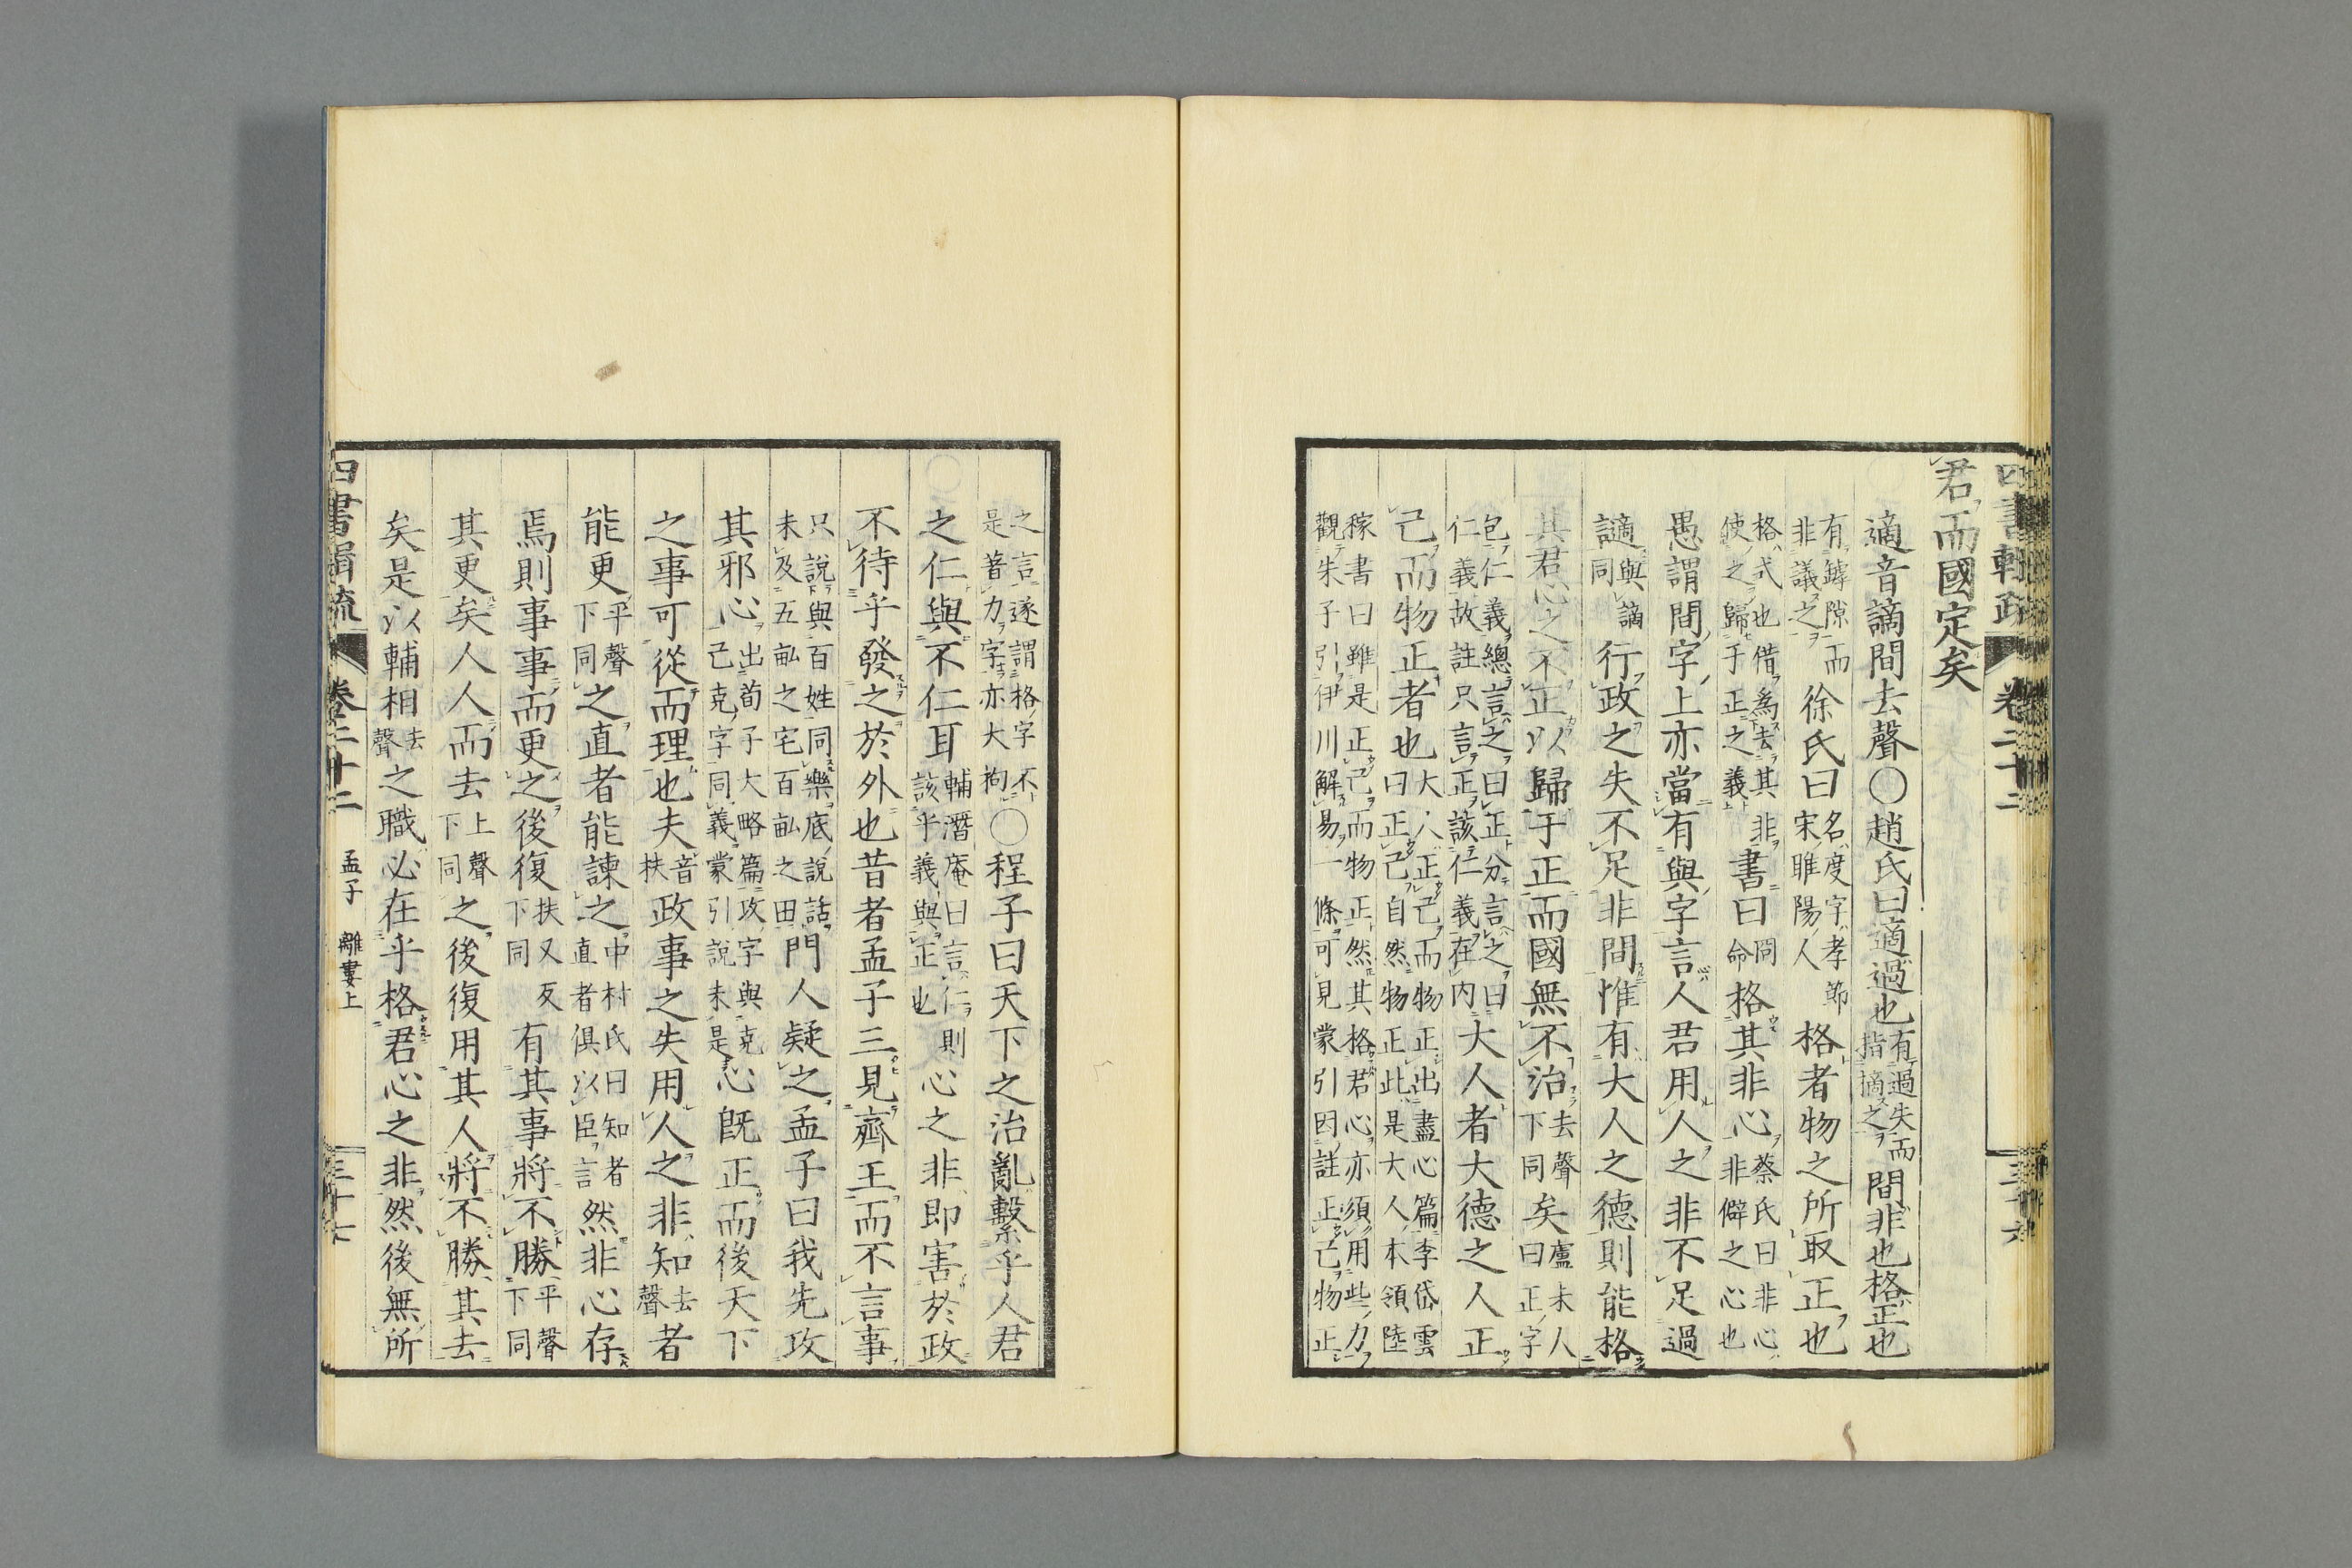 四書輯疏 卷二十二 三十六
君而國定矣
適音謫間去聲○趙氏曰適過也有過失而指摘之間非也格正也
有罅隙而非議之徐氏曰名度字孝節宋睢陽人格者物之所取正也
格式也借為去其非使之歸于正之義書曰冏命格其非心蔡氏曰非心非僻之心也
愚謂間字上亦當有與字言人君用人之非不足過
謫與謫同行政之失不足非間惟有大人之德則能格
其君心之不正以歸于正而國無不治去聲下同矣盧未人曰正字
包仁義總言之曰正分言之曰仁義故註只言正該仁義在內大人者大德之人正
己而物正者也大人正己而物正出盡心篇李岱雲曰正己自然物正此是大人本領陸
稼書曰雖是正己而物正然其格君心亦須用些力觀朱子引伊川解易一條可見蒙引因註正己物正
之言遂謂格字不是著力字亦大拘○程子曰天下之治亂繫乎人君
之仁與不仁耳輔潛庵曰言仁則該乎義與正也心之非即害於政
不待乎發之於外也昔者孟子三見齊王而不言事
只說與百姓同樂底說話未及五畝之宅百畝之田門人疑之孟子曰我先攻
其邪心出荀子大略篇攻字與克己克字同義蒙引說未是心既正而後天下
之事可從而理也夫音扶政事之失用人之非知去聲者
能更平聲下同之直者能諫之中村氏曰知者直者俱以臣言然非心存
焉則事事而更之後復扶又反下同有其事將不勝平聲下同
其更矣人人而去上聲下同之後復用其人將不勝其去
矣是以輔相去聲之職必在乎格君心之非然後無所
四書輯疏 卷二十二 孟子 離婁上 三十七